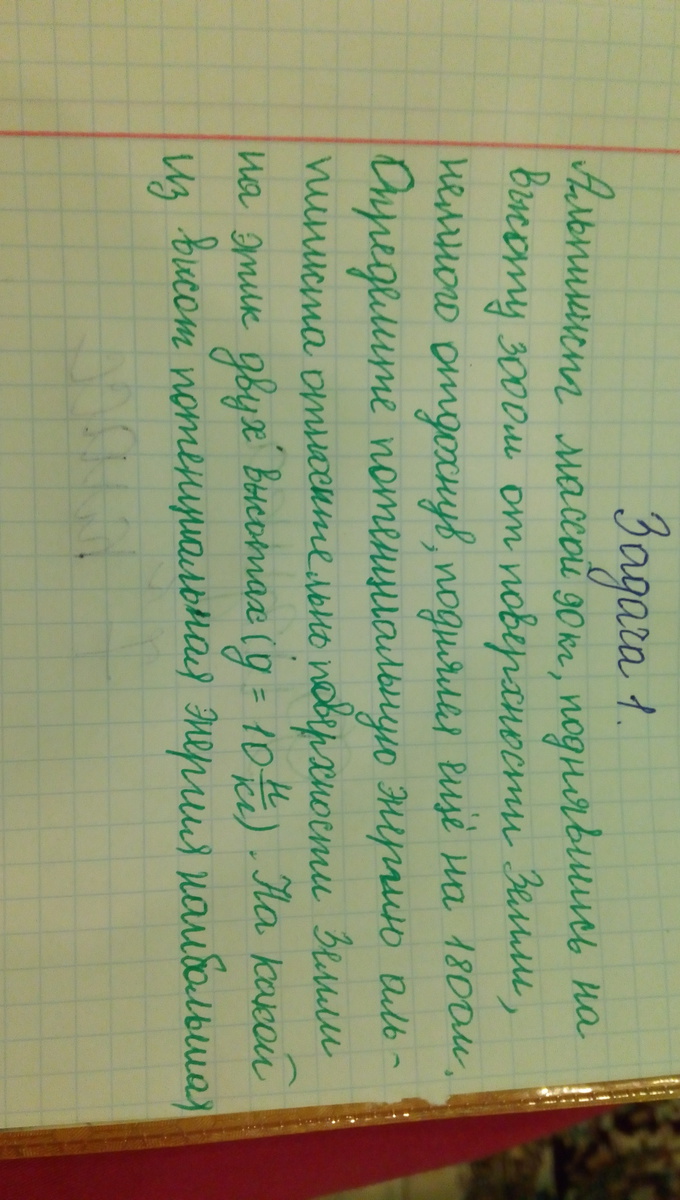 Задача 1.
Альпинист массой 90кг, поднявшись на
высоту 3000м от поверхности Земли,
немного отдохнув, поднялся ещё на 1800м.
Определите потенциальную энергию аль-
пиниста относительно поверхности Земли
на этих двух высотах (g = 10 Н/кг). На какой
из высот потенциальная энергия наибольшая